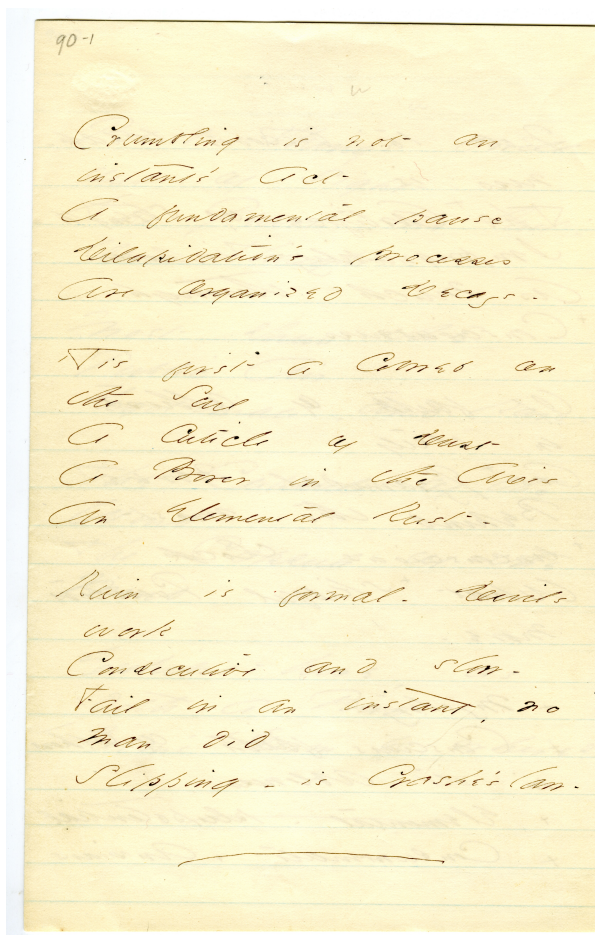 90-1
Crumbling is not an
instant's Act
A fundamental pause
Dilapidation's processes
Are Organized Decays -
'Tis first a Cobweb on
the Soul
A Cuticle of Dust
A Borer in the Axis
An Elemental Rust -
Ruin is formal - Devil's
work
Consecutive and slow -
Fail in an instant, no
man did
Slipping - is Crashe's law -